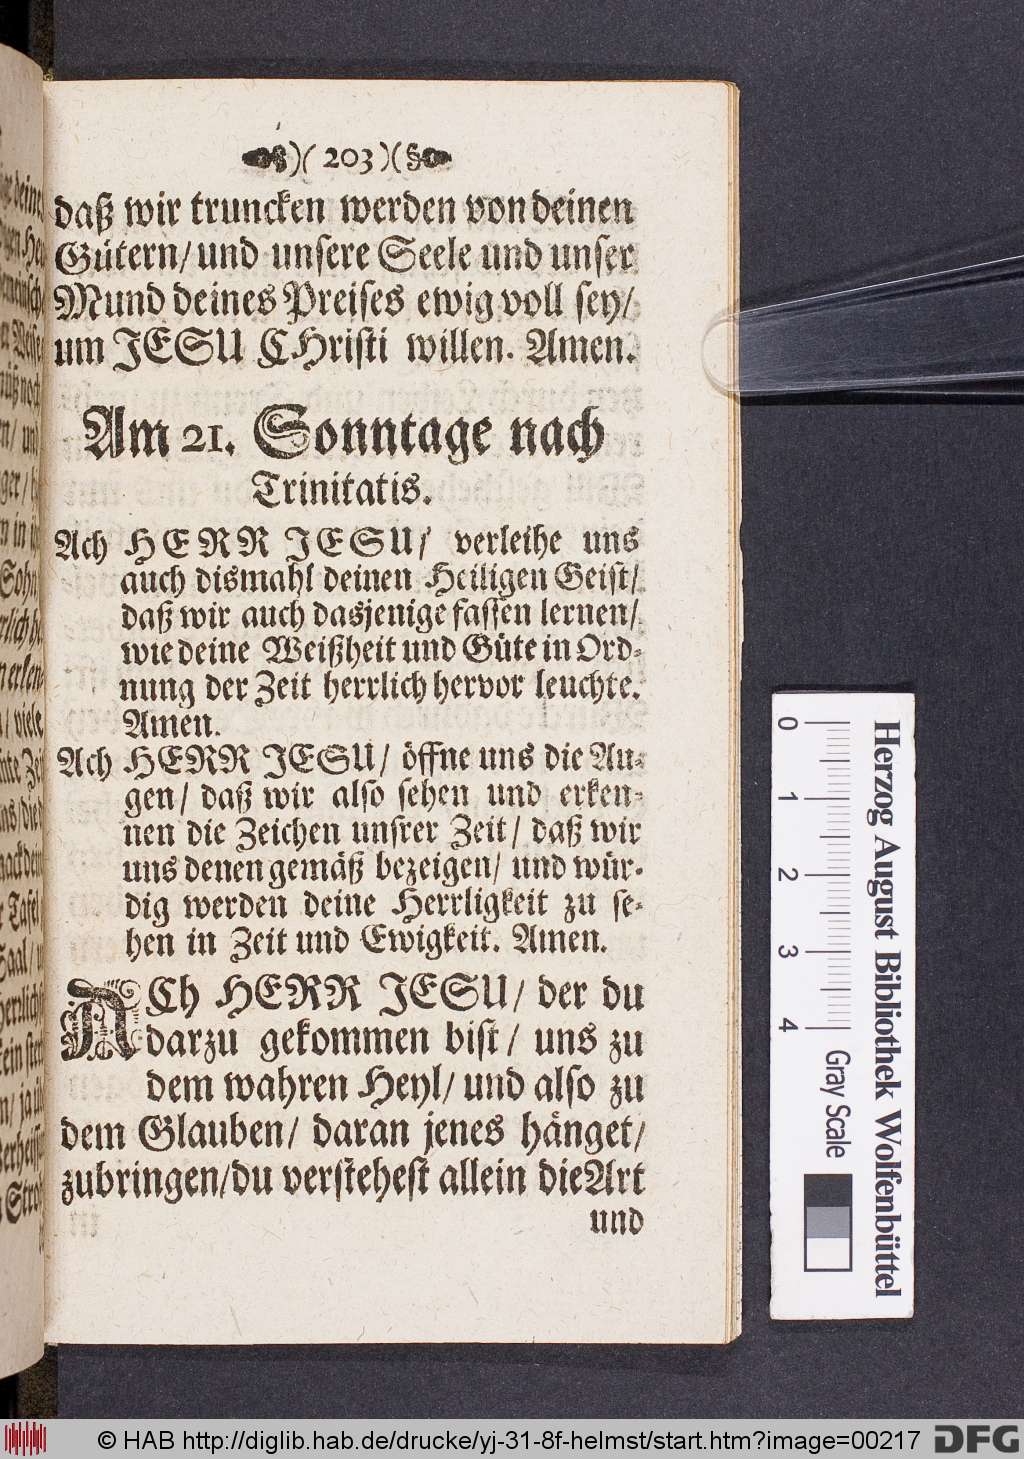 )( 203 )(
daß wir truncken werden von deinen
Gütern/ und unsere Seele und unser
Mund deines Preises ewig voll sey/
um JESU CHristi willen. Amen.
Am 21. Sonntage nach
Trinitatis.
Ach HERR JESU/ verleihe uns
auch dismahl deinen Heiligen Geist/
daß wir auch dasjenige fassen lernen/
wie deine Weißheit und Güte in Ord-
nung der Zeit herrlich hervor leuchte.
Amen.
Ach HERR JESU/ öffne uns die Au-
gen/ daß wir also sehen und erken-
nen die Zeichen unsrer Zeit/ daß wir
uns denen gemäß bezeigen/ und wür-
dig werden deine Herrligkeit zu se-
hen in Zeit und Ewigkeit. Amen.
ACh HERR JESU/ der du
darzu gekommen bist/ uns zu
dem wahren Heyl/ und also zu
dem Glauben/ daran jenes hänget/
zubringen/du verstehest allein die Art
und
Herzog August Bibliothek Wolfenbüttel
0 1 2 3 4
Gray Scale
© HAB http://diglib.hab.de/drucke/yj-31-8f-helmst/start.htm?image=00217
DFG